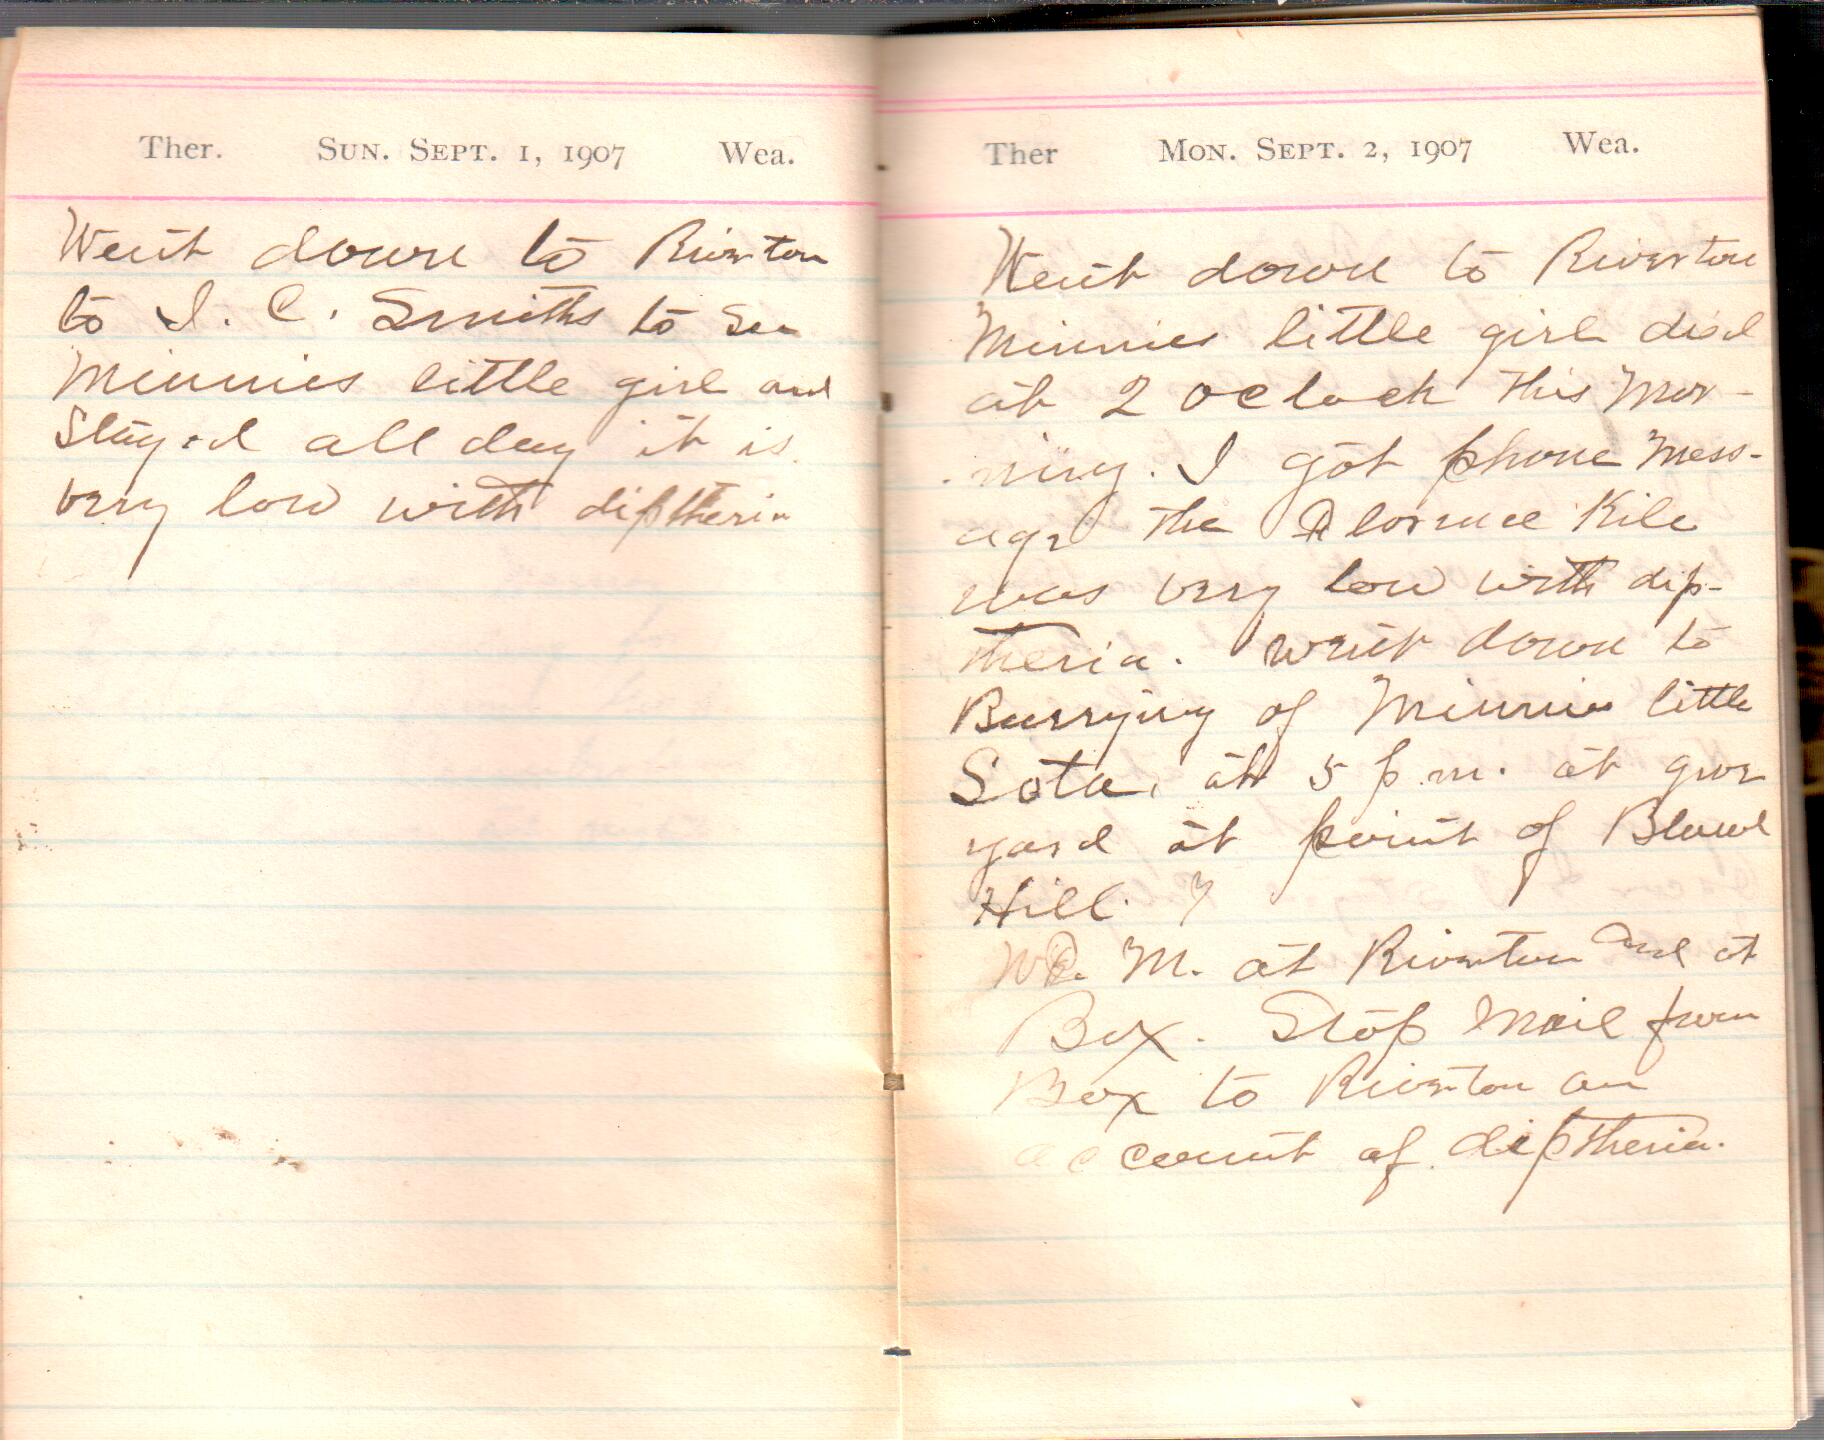 Ther. Sun. Sept. 1, 1907 Wea.
Went down to Riverton
to I. C. Smiths to See
Minnies little girl and
Stayed all day it is
very low with diptheria
Ther Mon. Sept. 2, 1907 Wea.
Went down to Riverton
Minnies little girl died
at 2 oclock this Mor-
ning. I got phone Mess-
age the Florence Kile
was very low with dip-
theria. went down to
Burrying of Minnies little
Sota, at 5 p.m. at grave
yard at point of
Hill.
M. at Riverton and at
Box. Stop Mail from
Box to Riverton on
account of diptheria.